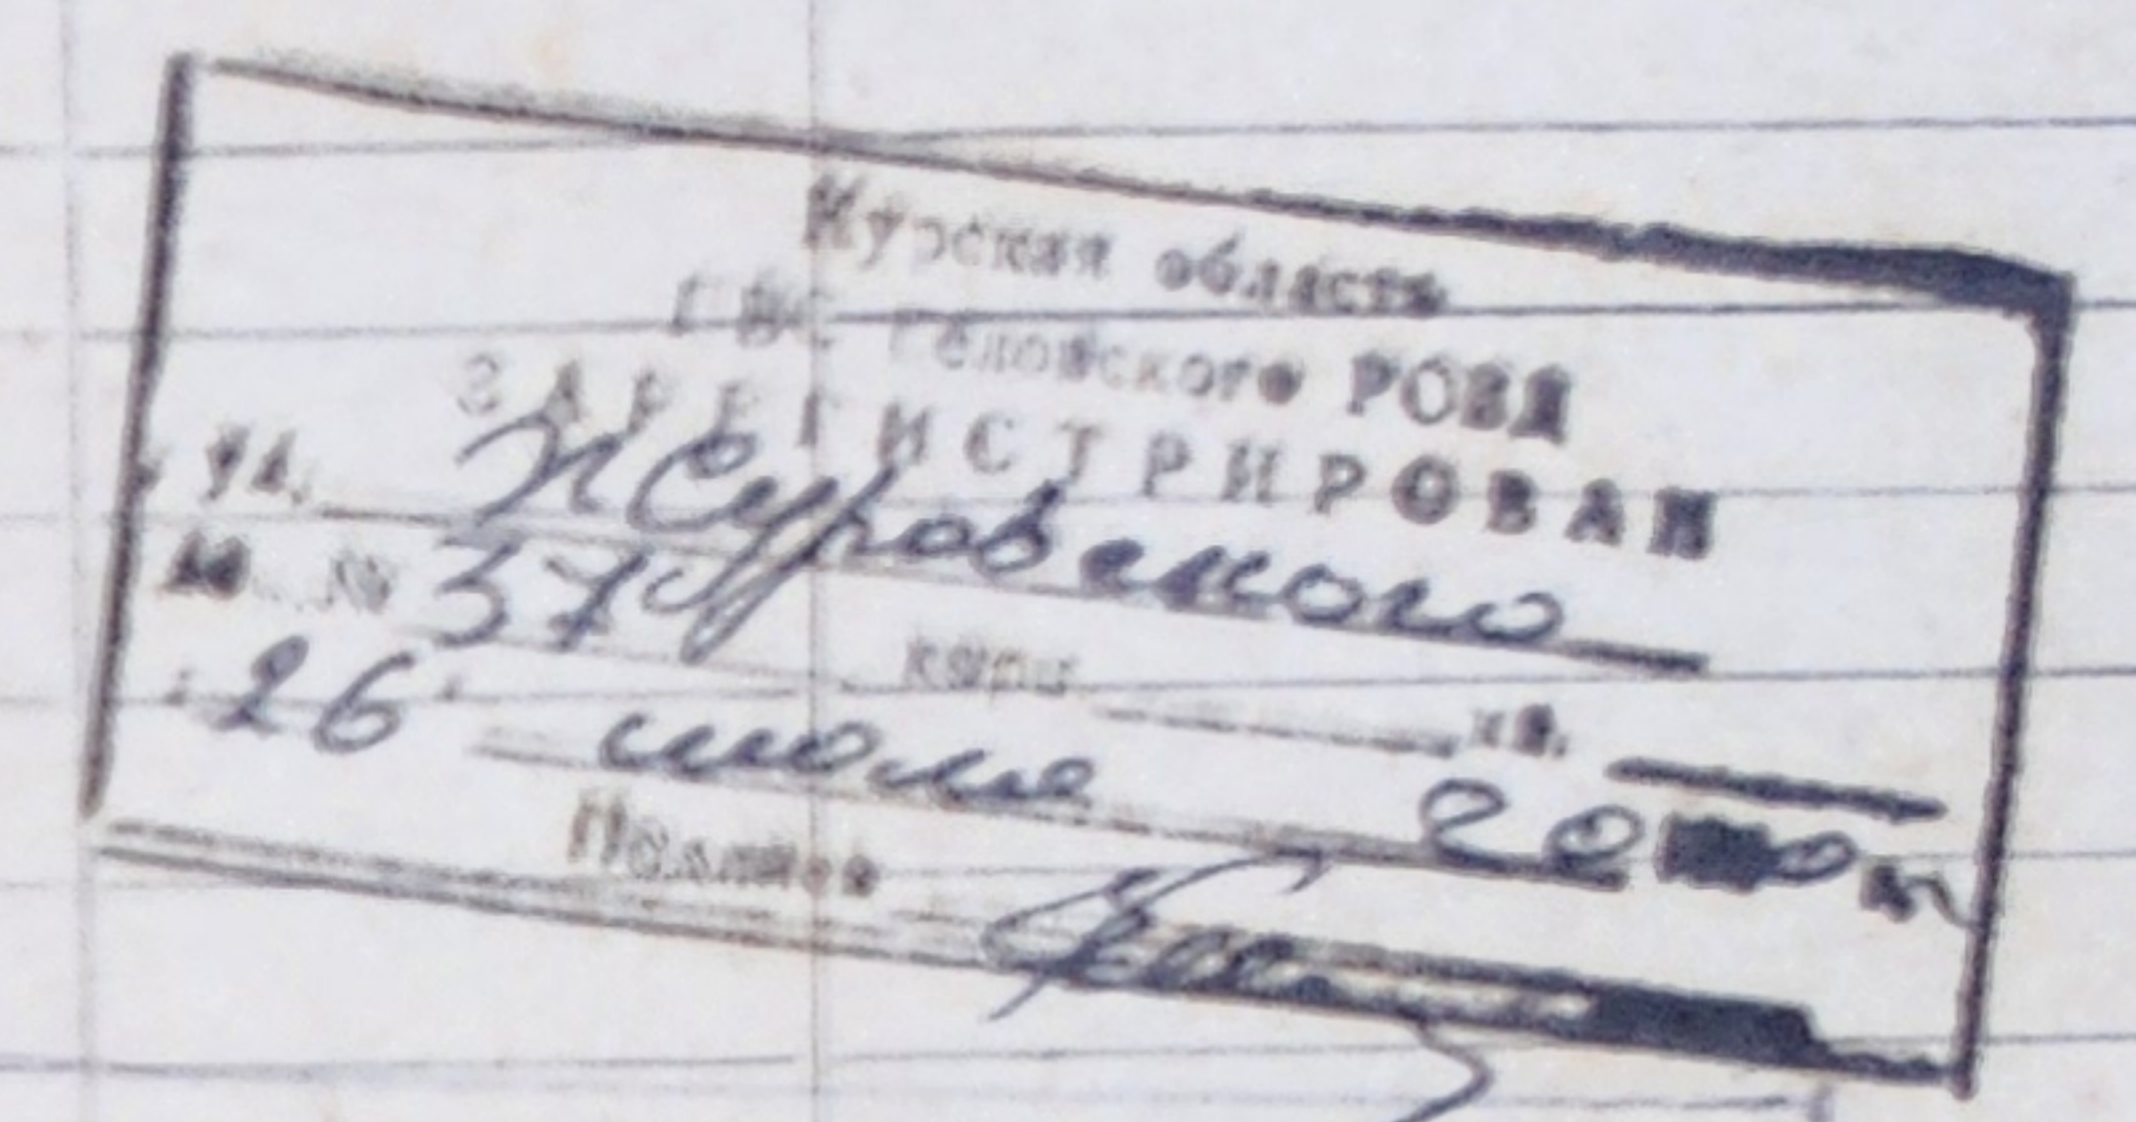 Курская область
ПВС Беловского РОВД
ЗАРЕГИСТРИРОВАН
ул. Журавского
№ 37
корп. кв.
"26" июля 20 0 г.
Подпись